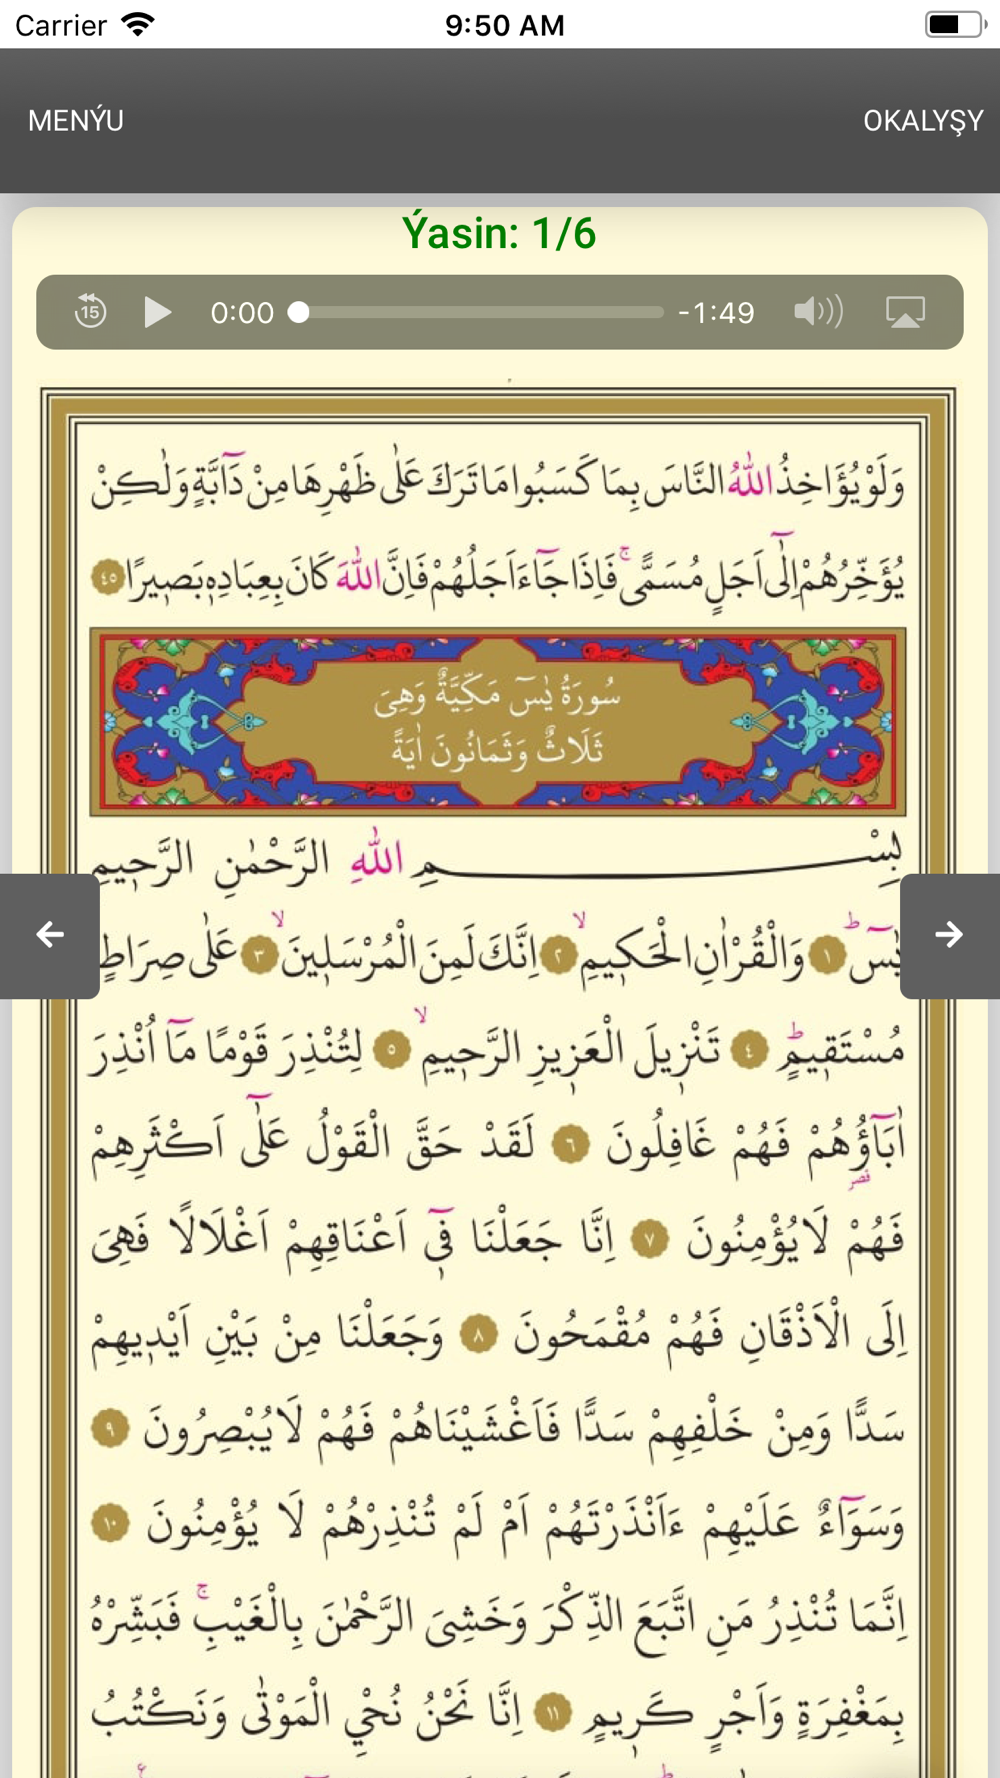 Carrier 9:50 AM
MENÝU OKALYŞY
Ýasin: 1/6
15 0:00 -1:49
وَلَوْ يُؤَاخِذُ اللّٰهُ النَّاسَ بِمَا كَسَبُوا مَا تَرَكَ عَلٰى ظَهْرِهَا مِنْ دَٓابَّةٍ وَلٰكِنْ
يُؤَخِّرُهُمْ اِلٰٓى اَجَلٍ مُسَمًّىۚ فَاِذَا جَٓاءَ اَجَلُهُمْ فَاِنَّ اللّٰهَ كَانَ بِعِبَادِهٖ بَصٖيرًا ٤٥
سُورَةُ يٰسٓ مَكِّيَّةٌ وَهِىَ
ثَلَاثٌ وَثَمَانُونَ اٰيَةً
بِسْمِ اللّٰهِ الرَّحْمٰنِ الرَّحٖيمِ
يٰسٓۜ ١ وَالْقُرْاٰنِ الْحَكٖيمِۙ ٢ اِنَّكَ لَمِنَ الْمُرْسَلٖينَۙ ٣ عَلٰى صِرَاطٍ
مُسْتَقٖيمٍۜ ٤ تَنْزٖيلَ الْعَزٖيزِ الرَّحٖيمِۙ ٥ لِتُنْذِرَ قَوْمًا مَٓا اُنْذِرَ
اٰبَٓاؤُ۬هُمْ فَهُمْ غَافِلُونَ ٦ لَقَدْ حَقَّ الْقَوْلُ عَلٰٓى اَكْثَرِهِمْ
فَهُمْ لَا يُؤْمِنُونَ ٧ اِنَّا جَعَلْنَا فٖٓى اَعْنَاقِهِمْ اَغْلَالًا فَهِىَ
اِلَى الْاَذْقَانِ فَهُمْ مُقْمَحُونَ ٨ وَجَعَلْنَا مِنْ بَيْنِ اَيْدٖيهِمْ
سَدًّا وَمِنْ خَلْفِهِمْ سَدًّا فَاَغْشَيْنَاهُمْ فَهُمْ لَا يُبْصِرُونَ ٩
وَسَوَٓاءٌ عَلَيْهِمْ ءَاَنْذَرْتَهُمْ اَمْ لَمْ تُنْذِرْهُمْ لَا يُؤْمِنُونَ ١٠
اِنَّمَا تُنْذِرُ مَنِ اتَّبَعَ الذِّكْرَ وَخَشِىَ الرَّحْمٰنَ بِالْغَيْبِۚ فَبَشِّرْهُ
بِمَغْفِرَةٍ وَاَجْرٍ كَرٖيمٍ ١١ اِنَّا نَحْنُ نُحْيِ الْمَوْتٰى وَنَكْتُبُ